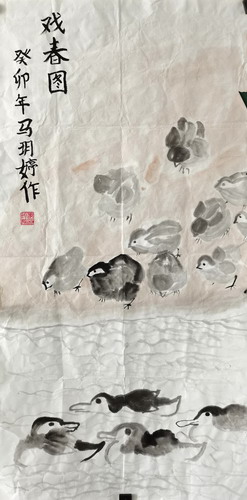 戏春图
癸卯年马玥婷作